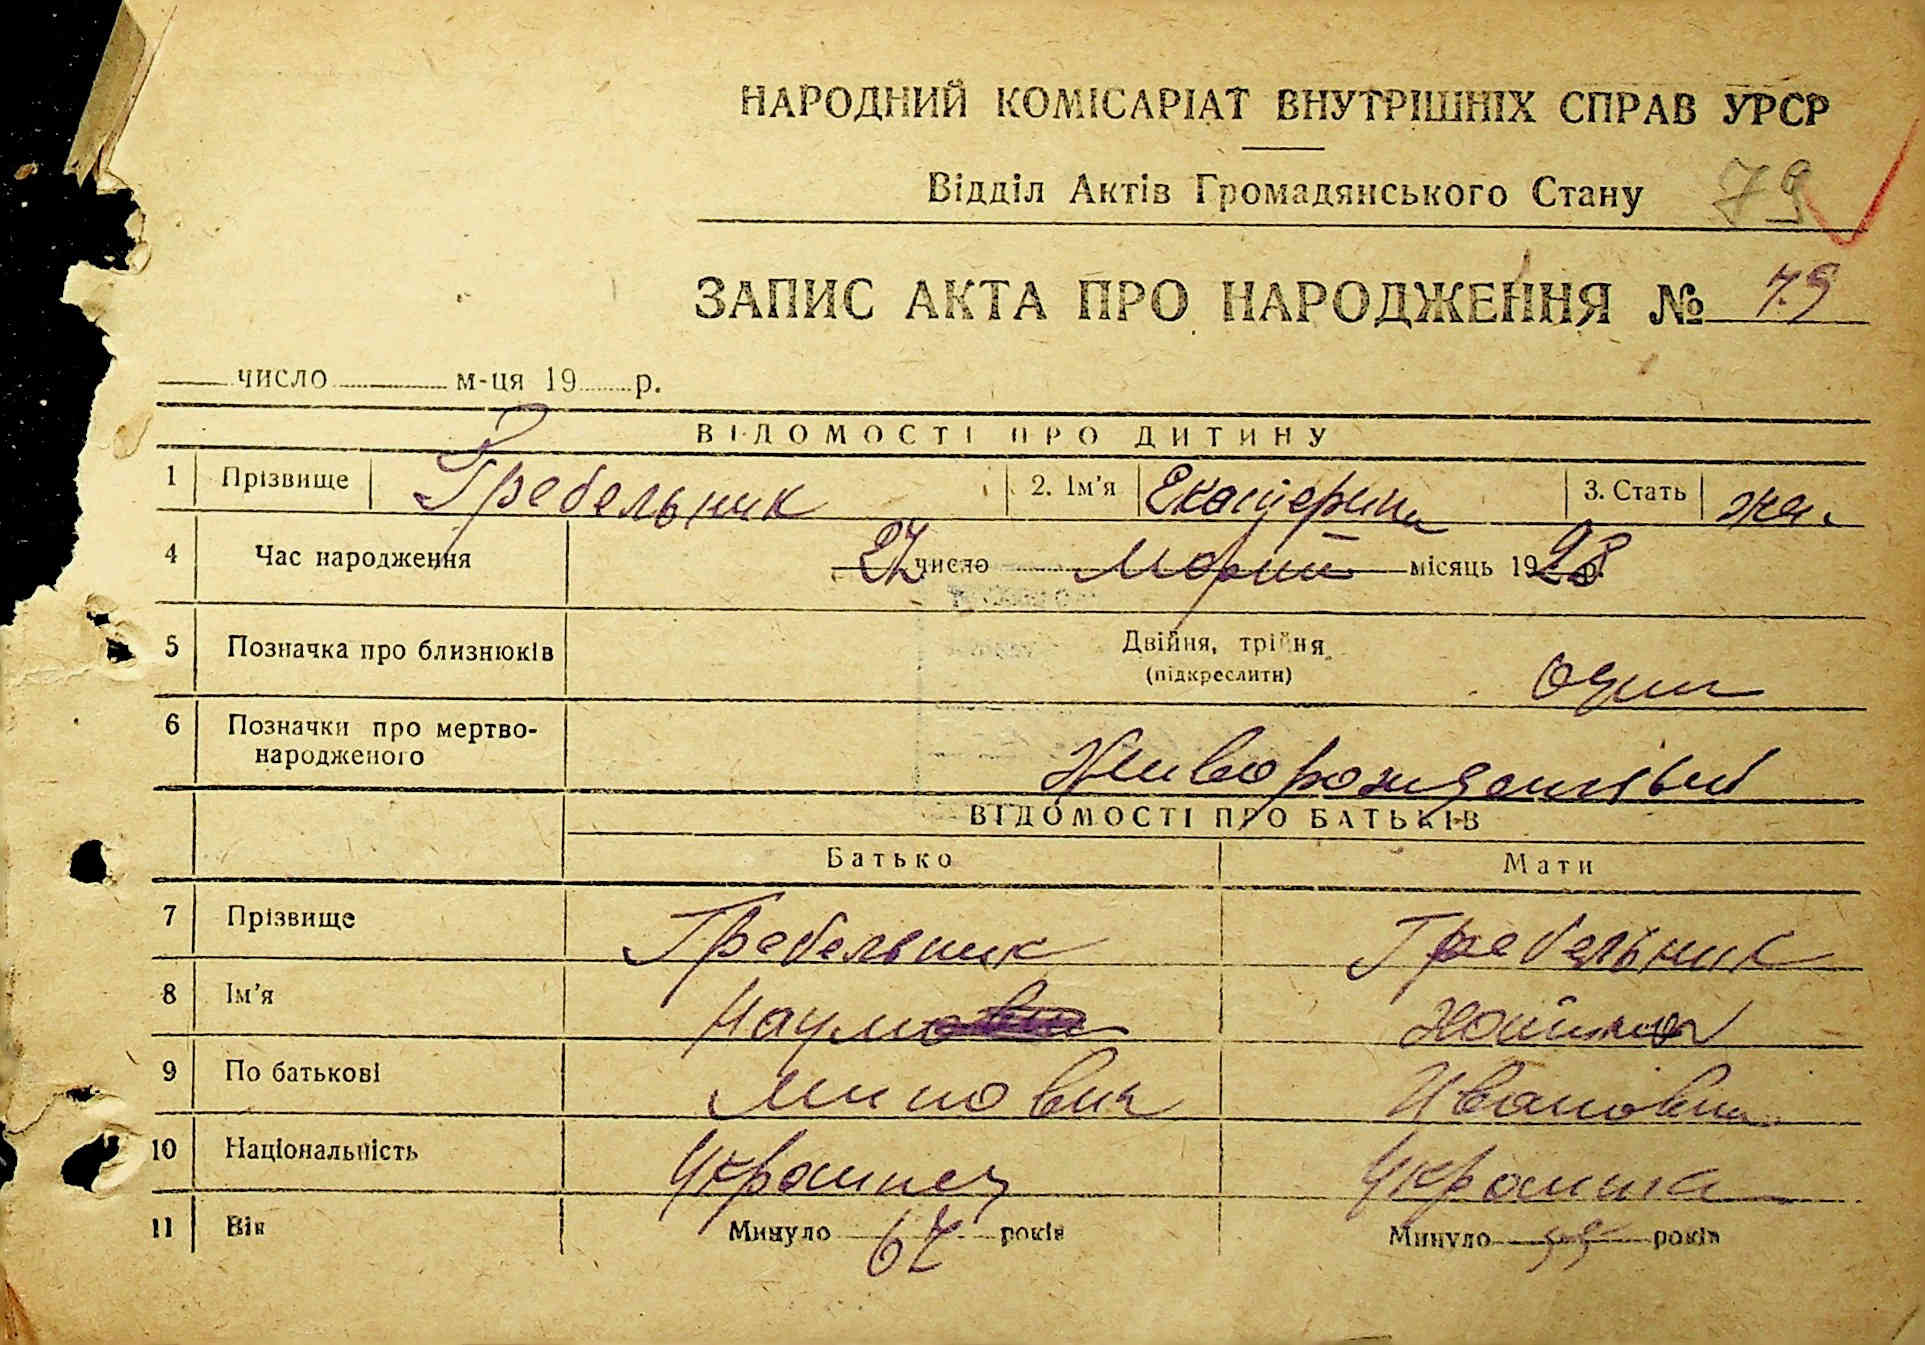 НАРОДНИЙ КОМІСАРІАТ ВНУТРІШНІХ СПРАВ УРСР
Відділ Актів Громадянського Стану 79
ЗАПИС АКТА ПРО НАРОДЖЕННЯ № 79
число м-ця 19 р.
ВІДОМОСТІ ПРО ДИТИНУ
1 Прізвище Гребельник 2. Ім'я Екатерина 3. Стать жен.
4 Час народження 27 число Марта місяць 1928 р.
5 Позначка про близнюків Двійня, трійня
(підкреслити) один
6 Позначки про мертво-
народженого Живорожденный
ВІДОМОСТІ ПРО БАТЬКІВ
Батько Мати
7 Прізвище Гребельник Гребельник
8 Ім'я Наум
9 По батькові Ивановна
10 Національність Украинец Украинка
11 Вік Минуло 67 років Минуло років